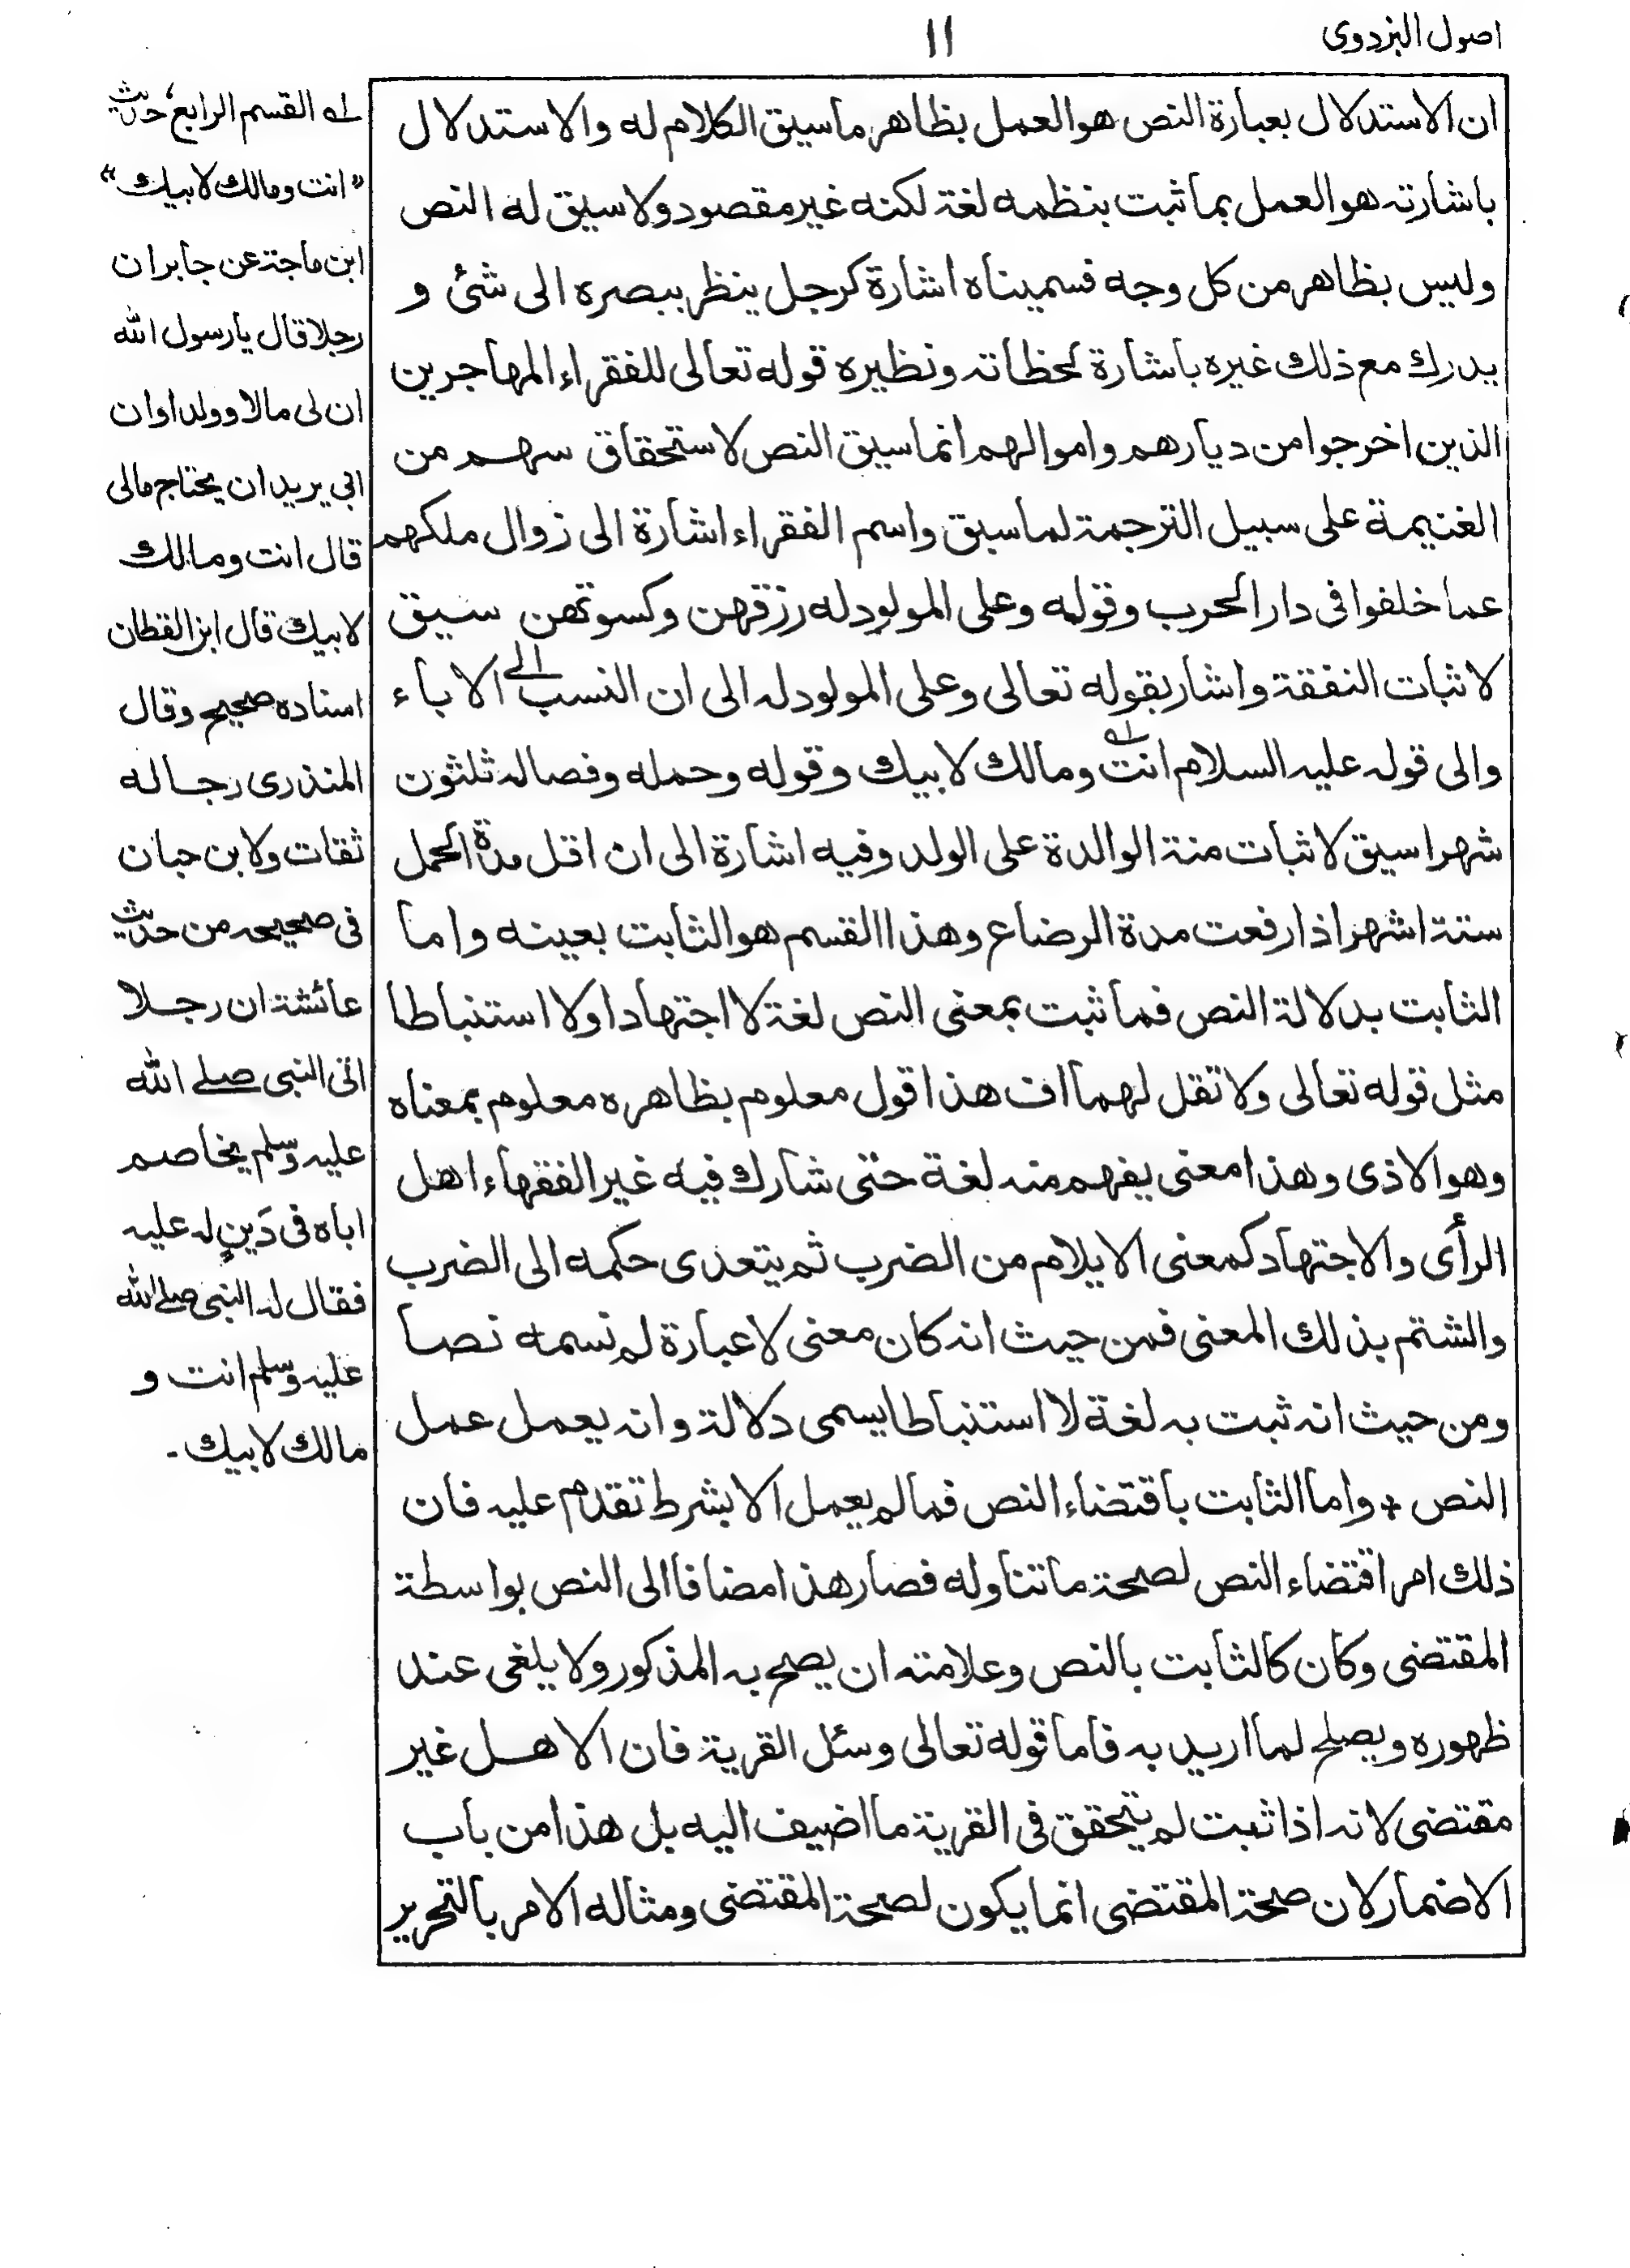 اصول البزدوى
١١
ان الاستدلال بعبارة النص هو العمل بظاهر ما سيق الكلام له والاستدلال
باشارته هو العمل بما ثبت بنظمه لغة لكنه غير مقصود ولا سيق له النص
وليس بظاهر من كل وجه فسميناه اشارة كرجل ينظر ببصره الى شئ و
يدرك مع ذلك غيره باشارة لحظاته ونظيره قوله تعالى للفقراء المهاجرين
الذين اخرجوا من ديارهم واموالهم انما سيق النص لاستحقاق سهم من
الغنيمة على سبيل الترجمة لما سبق واسم الفقراء اشارة الى زوال ملكهم
عما خلفوا فى دار الحرب وقوله وعلى المولود له رزقهن وكسوتهن سيق
لاثبات النفقة واشار بقوله تعالى وعلى المولود له الى ان النسب الى الاباء
والى قوله عليه السلام انت ومالك لابيك وقوله وحمله وفصاله ثلثون
شهرا سيق لاثبات منة الوالدة على الولد وفيه اشارة الى ان اقل مدة الحمل
ستة اشهر اذا رفعت مدة الرضاع وهذا القسم هو الثابت بعينه واما
الثابت بدلالة النص فما ثبت بمعنى النص لغة لا اجتهادا ولا استنباطا
مثل قوله تعالى ولا تقل لهما اف هذا قول معلوم بظاهره معلوم بمعناه
وهو الاذى وهذا معنى يفهم منه لغة حتى شارك فيه غير الفقهاء اهل
الرأى والاجتهاد كمعنى الايلام من الضرب ثم يتعدى حكمه الى الضرب
والشتم بذلك المعنى فمن حيث انه كان معنى لا عبارة لم نسمه نصا
ومن حيث انه ثبت به لغة لا استنباطا يسمى دلالة وانه يعمل عمل
النص + واما الثابت باقتضاء النص فما لم يعمل الا بشرط تقدم عليه فان
ذلك امر اقتضاء النص لصحة ما تناوله فصار هذا مضافا الى النص بواسطة
المقتضى وكان كالثابت بالنص وعلامته ان يصح به المذكور ولا يلغى عند
ظهوره ويصلح لما اريد به فاما قوله تعالى وسئل القرية فان الاهل غير
مقتضى لانه اذا ثبت لم يتحقق فى القرية ما اضيف اليه بل هذا من باب
الاضمار لان صحة المقتضى انما يكون لصحة المقتضى ومثاله الامر بالتحرير
لـه القسم الرابع، حديث
"انت ومالك لابيك"
ابن ماجة عن جابر ان
رجلا قال يا رسول الله
ان لى مالا وولدا وان
ابى يريد ان يحتاج مالى
قال انت ومالك
لابيك قال ابن القطان
اسناده صحيح وقال
المنذرى رجاله
ثقات ولابن حبان
فى صحيحه من حديث
عائشة ان رجلا
اتى النبى صلى الله
عليه وسلم يخاصم
اباه فى دَينٍ له عليه
فقال له النبى صلى الله
عليه وسلم انت و
مالك لابيك -